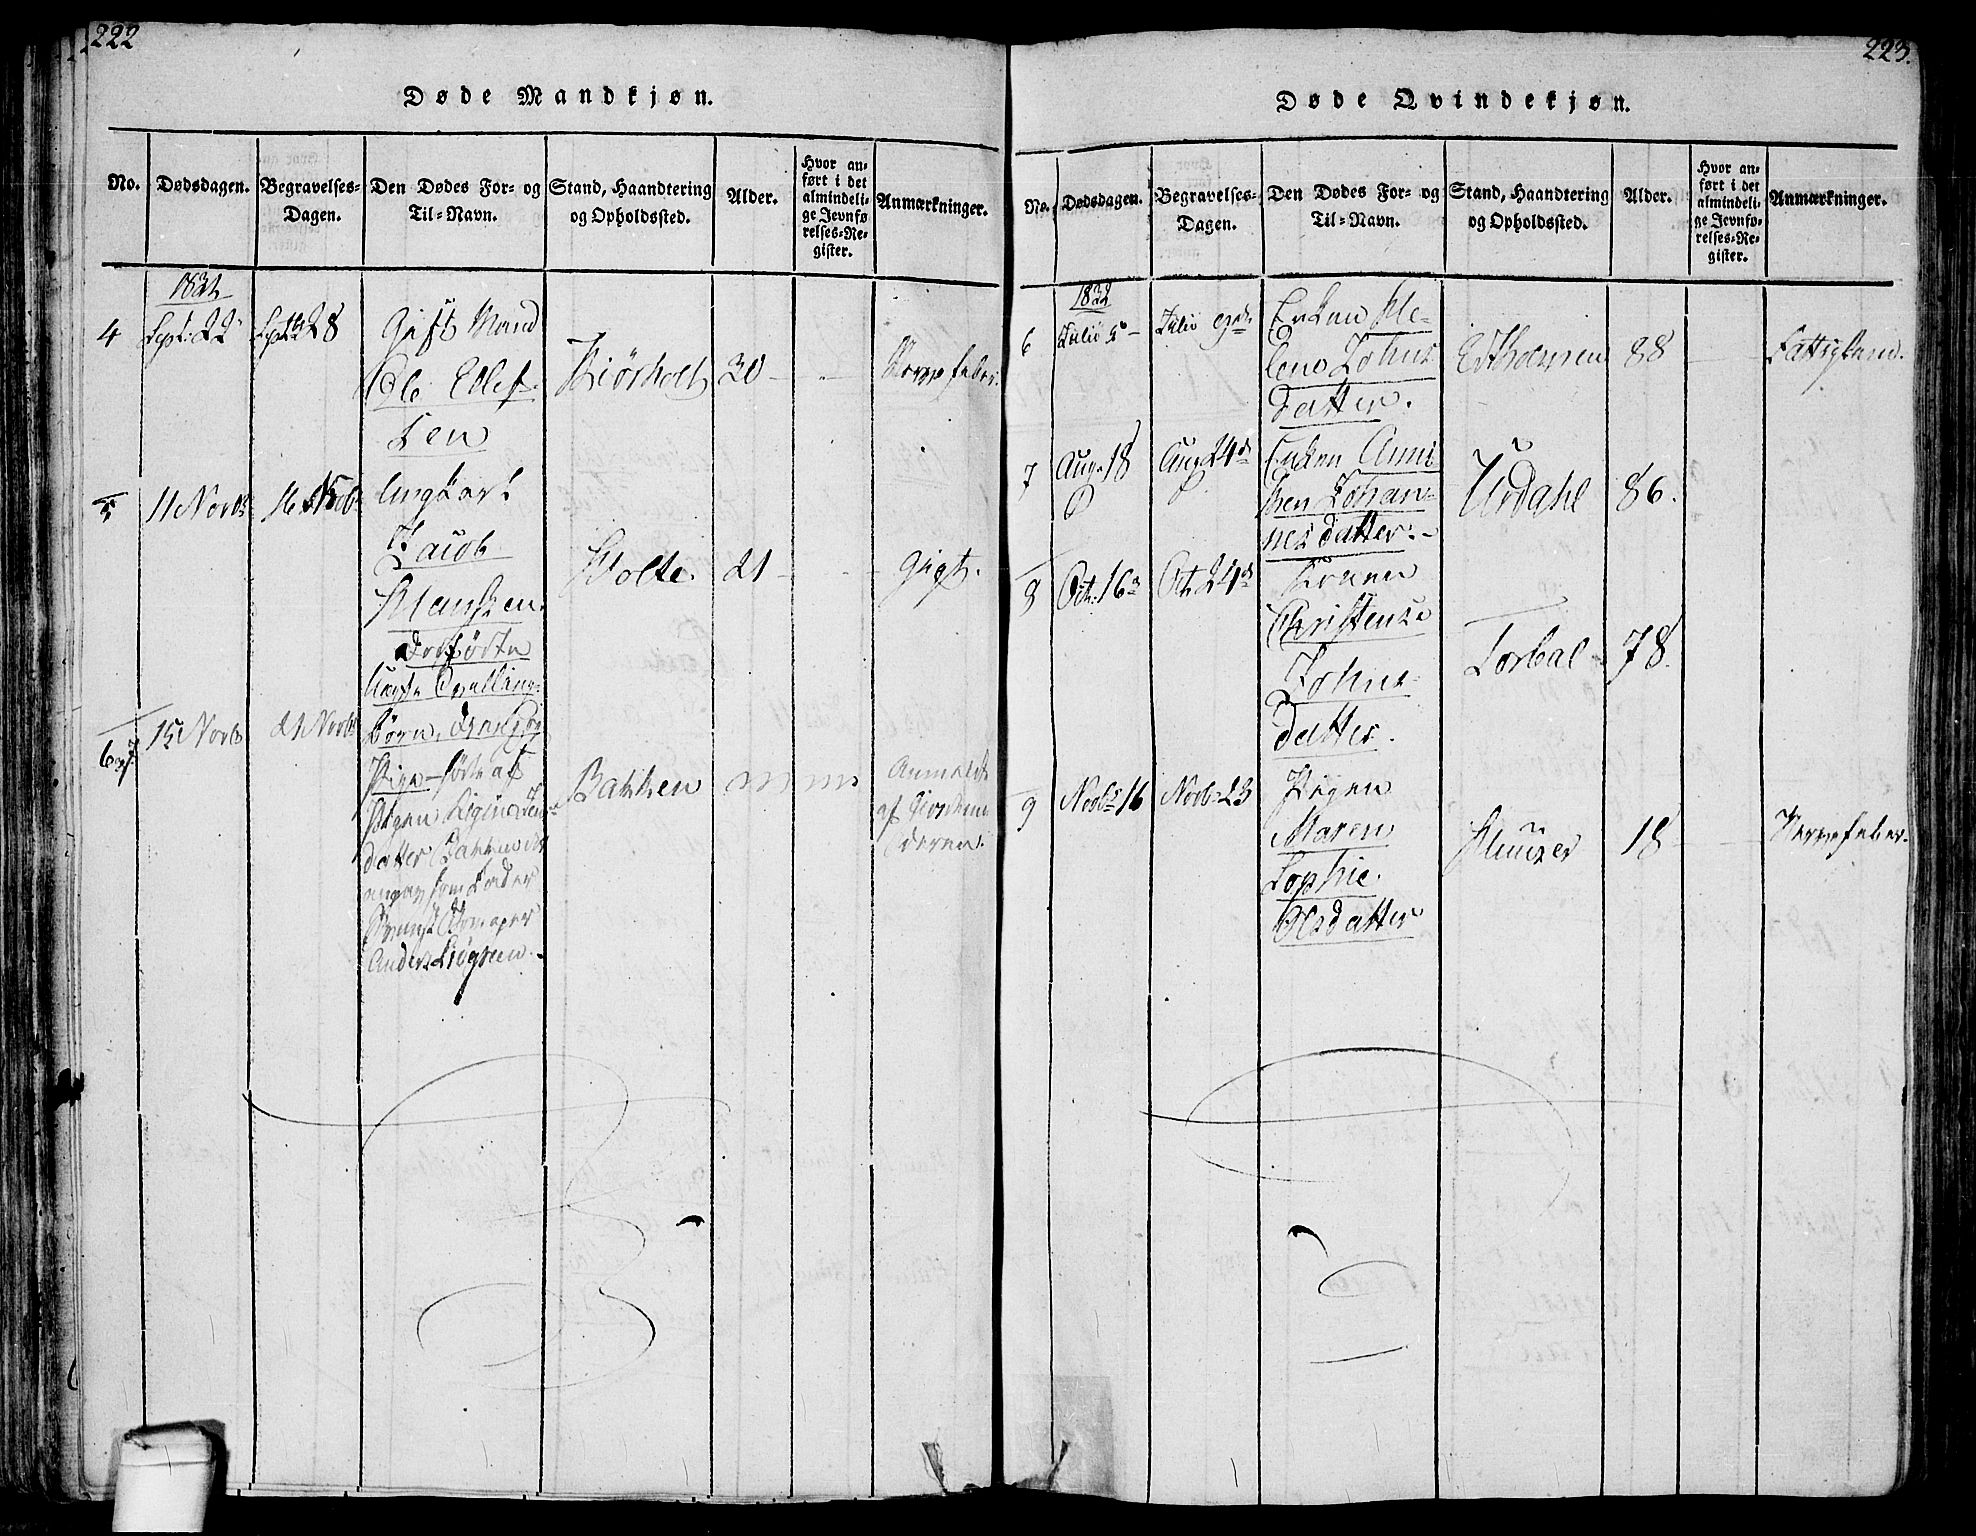 222
Døde Mandkjøn.
No.
Dødsdagen.
Begravelses-
Dagen.
Den Dødes For- og
Til-Navn.
Stand, Haandtering
og Opholdssted.
Alder.
Hvor an-
ført i det
almindeli-
ge Jevnfø
relses-Re-
gister.
Anmærkninger.
1832
4
Sept: 22
Sept 28
Gift Mand
Ole Ellef-
sen
30
Nervefeber.
5
11 Novb
16 Novb
Ungkarl
Jacob
Hansen
Holte
21
Gigt.
dødfødte
Tvilling-
6 og 7
15 Novb
21 Novb
børn, Dreng og
Pige - født af
Pigen
datter Bakken
angav som Fader
Anders
Bakken
Anmeldt
af Jordem
oderen.
223.
Døde Qvindekjøn.
No.
Dødsdagen.
Begravelses-
Dagen.
Den Dødes For- og
Til-Navn.
Stand, Haandtering
og Opholdssted.
Alder.
Hvor an-
ført i det
almindeli-
ge Jevnfø-
relses-Re-
gister.
Anmærkninger.
1832
6
Julii
Julii
Enken He-
lene Johns
datter.
88
Fattiglem.
7
Aug. 18
Aug 24de
Enken Anni
ken Johan-
nesdatter.
Urdahl
86.
8
Octr. 16
Octr 24de
Konen
Christense
Johns-
datter.
Torbal
78.
9
Novbr 16
Novbr 23
Pigen
Maren
Sophie
Olsdatter
18
Nervefeber.